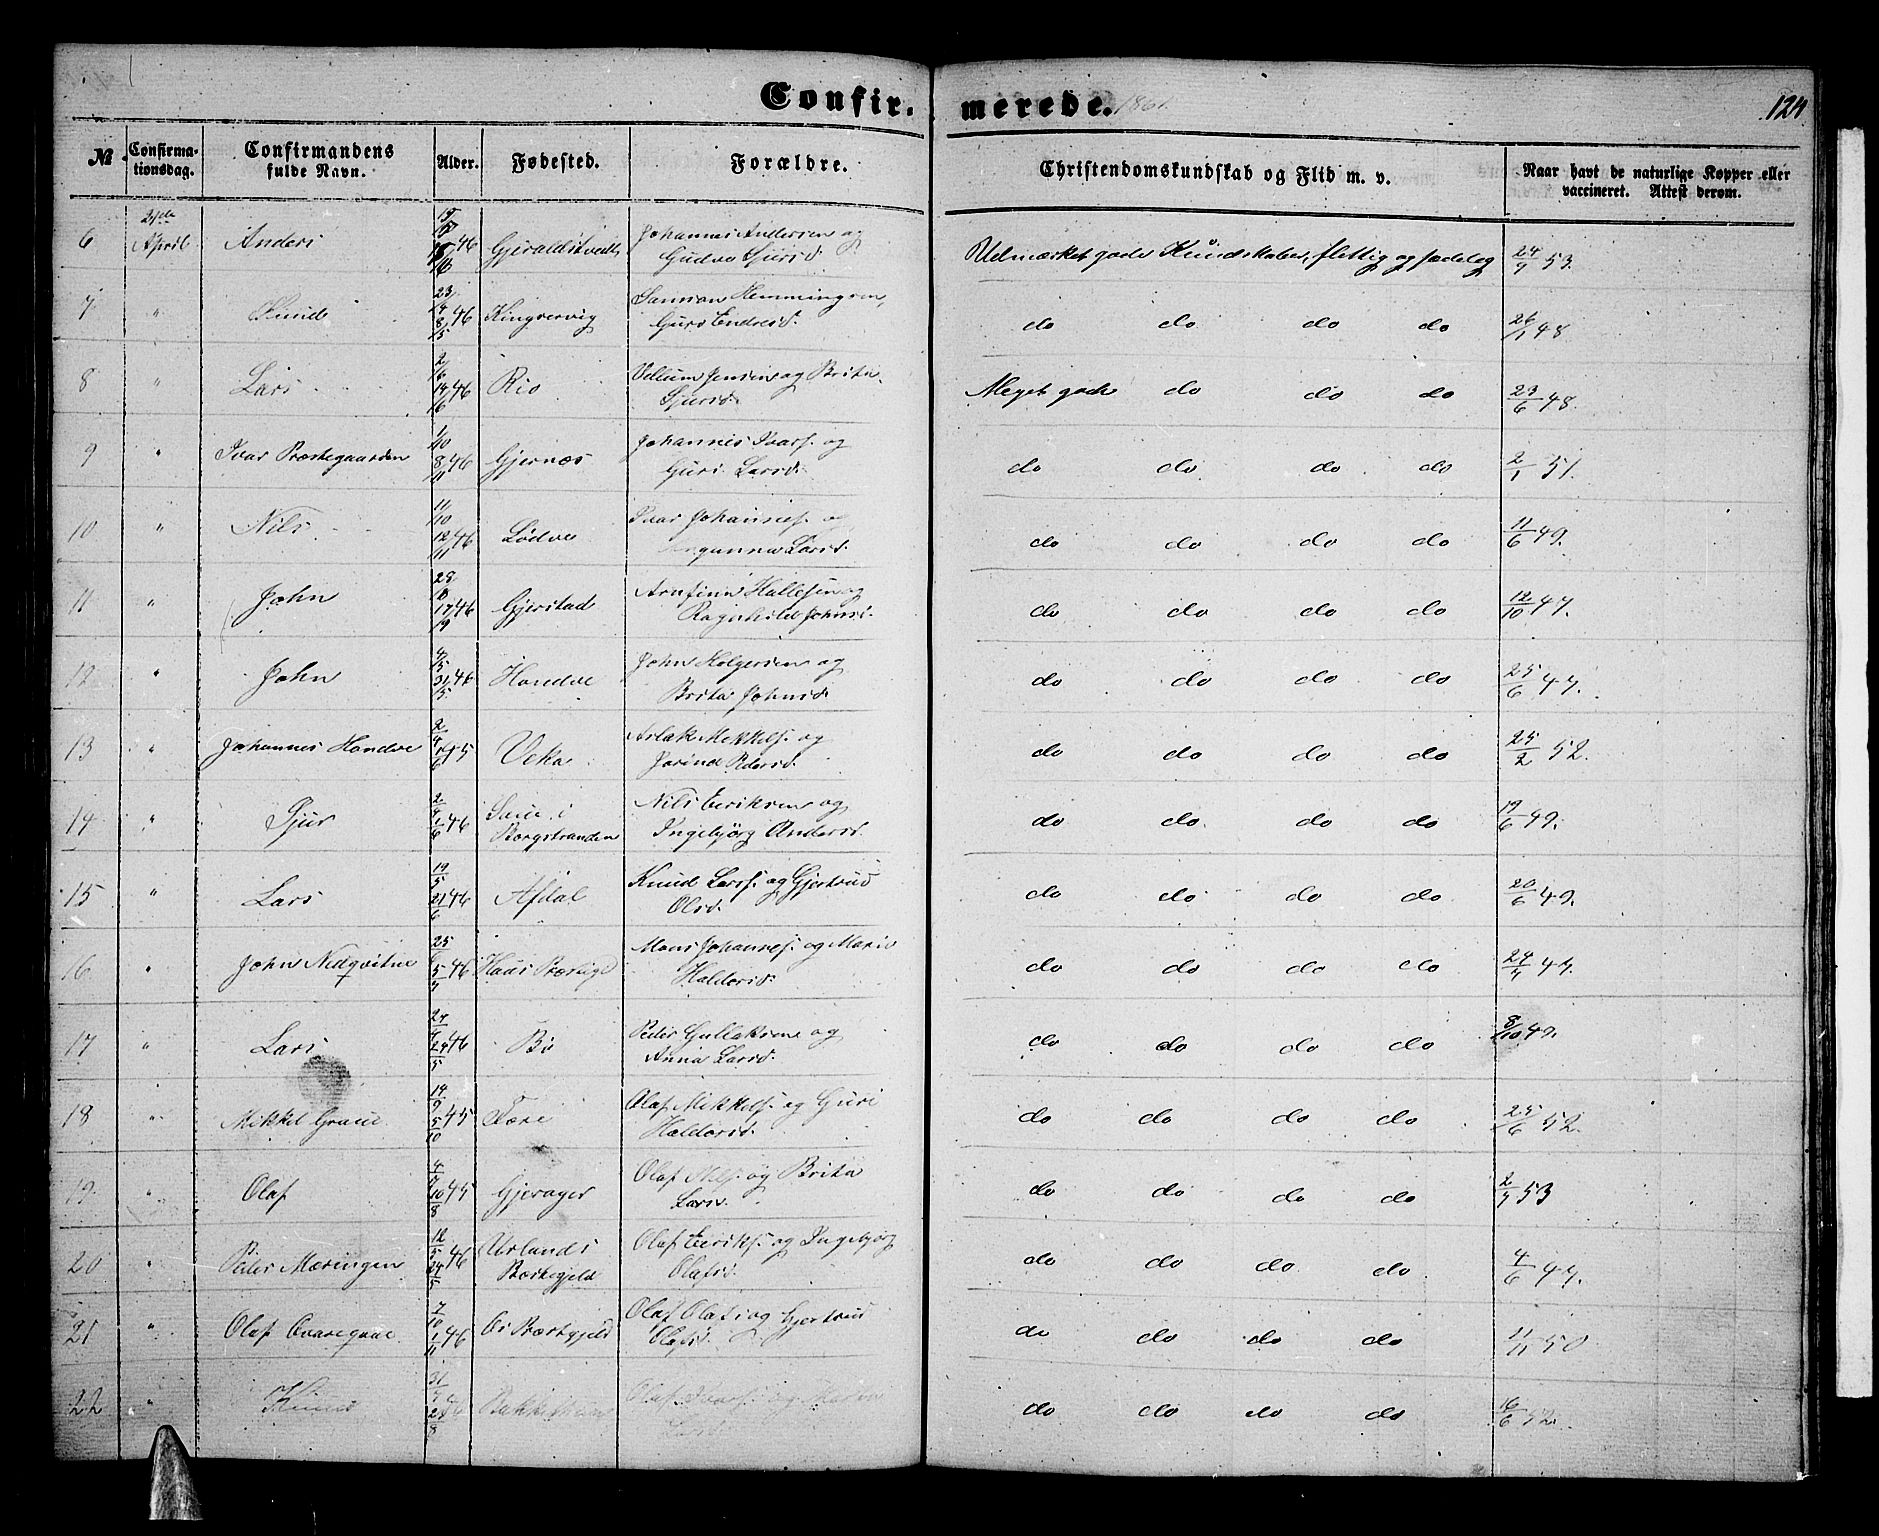 Confirmerede. 1861. 124
№ Confirmationsdag. Confirmandens fulde Navn. Alder. Fødested. Forældre. Christendomskundskab og Flid m. v. Naar havt de naturlige Kopper eller vaccineret. Attest derom.
6 21de April Anders 46 Gjeraldstvedt Johannes Andersen og Gudve Sjursd. Udmærket gode Kundskaber, flittig og sædelig 24/9 53.
7 " Knud 23/4 8/5 46 Kingservig Samson Hemmingsen, Guro Endresd. do do do do 26/1 48
8 " Lars 2/6 14/6 46 Rio Villum Jensen og Brita Sjursd. Meget gode do do do 23/6 48.
9 " Ivar Præstegaarden 1/10 8/11 46 Gjernæs Johannes Ivars. og Guri Larsd. do do do do 2/1 51.
10 " Nils 11/10 12/11 46 Lødve Ivar Johannes. og Larsd. do do do do 11/6 49.
11 " John 46 Gjerstad Arnfinn Hallesen og Ragnhild Johnsd. do do do do 12/10 47.
12 " John 4/5 31/5 46 Handve John Holgersen og Brita Johnsd. do do do do 25/6 47.
13 " Johannes Handve 45 Veka Aslak Mikkels. og Jorind Pdersd. do do do do 25/2 52.
14 " Sjur 46 Saue i Borgstranden Nils Eeriksen og Ingebjørg Andersd. do do do do 19/6 49.
15 " Lars 19/5 21/6 46 Afdal Knud Larss. og Gjertrud Olsd. do do do do 20/6 49.
16 " John Nedqvitne 46 Haus Præstegd Mons Johannes. og Mario Haldorsd. do do do do 24/7 47.
17 " Lars 46 Bø Peder Gullaksen og Anna Larsd. do do do do 8/10 49.
18 " Mikkel Graue 14/9 5/10 45 Tære Olaf Mikkels. og Guri Haldorsd. do do do do 25/6 52.
19 " Olaf 4/7 10/8 45 Gjerager Olaf Nils. og Brita Larsd. do do do do 2/7 53
20 " Peder Mæringen 12/5 24/5 46 Urlands Præstegjeld Olaf Eeriks. og Ingebjørg Olafsd. do do do do 4/6 47.
21 " Olaf 7/10 1/11 46 Os Præstgjeld Olaf Olafs. og Gjertrud Olafsd. do do do do 11/11 50
22 " Knud Olaf Ivars. og Larsd. do do do do 16/6 52.